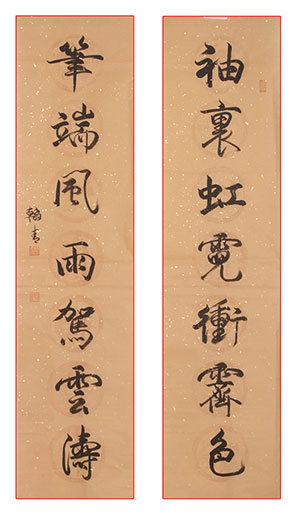 袖裏虹霓衝霽色
筆端風雨駕雲濤
翰青